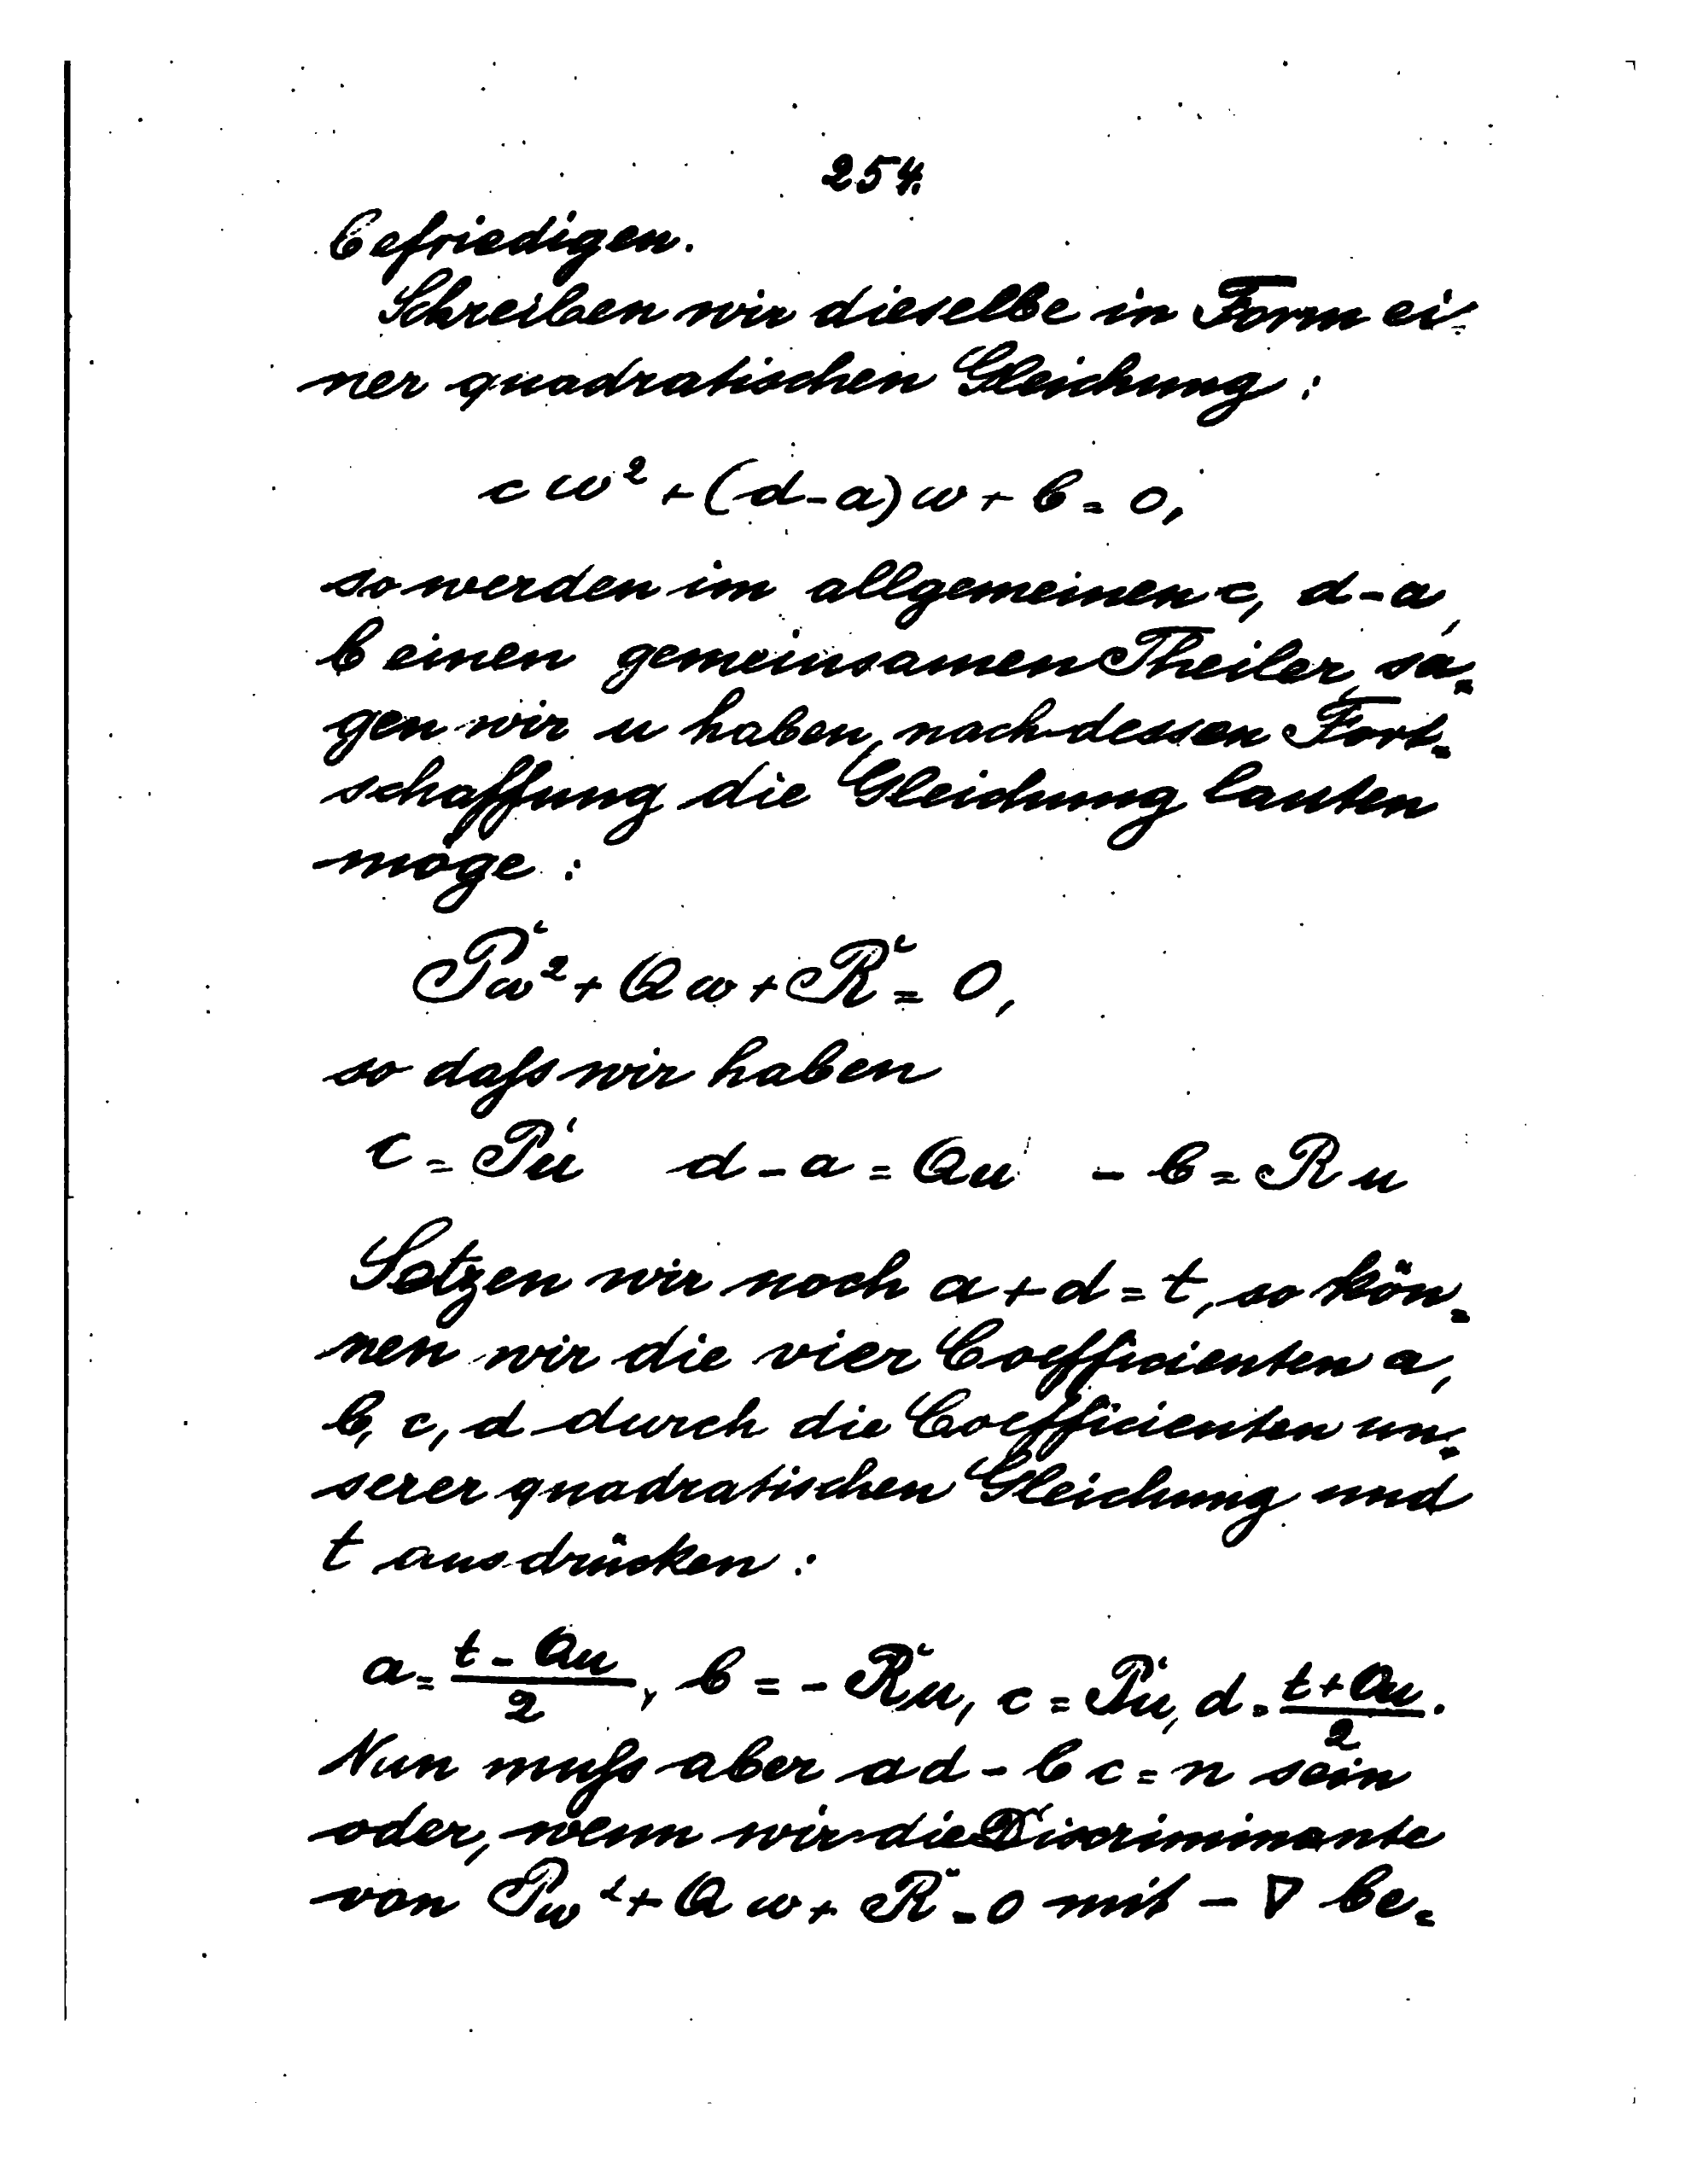 254.
befriedigen.
Schreiben wir dieselbe in Form ei=
ner quadratischen Gleichung:
cω² + (d-a)ω + b = 0,
so werden im allgemeinen c, d-a,
b einen gemeinsamen Theiler, sa=
gen wir u haben, nach dessen Fort=
schaffung die Gleichung lauten
möge:
Pω² + Qω + R = 0,
so daſs wir haben
c = Pu d-a = Qu -b = Ru
Setzen wir noch a+d = t, so kön=
nen wir die vier Coefficienten a,
b, c, d durch die Coefficienten un=
serer quadratischen Gleichung und
t ausdrücken:
a = (t-Qu)/2, b = -Ru, c = Pu, d = (t+Qu)/2.
Nun muſs aber ad-bc = n sein
oder, wenn wir die Discriminante
von Pω² + Qω + R = 0 mit -∇ be=